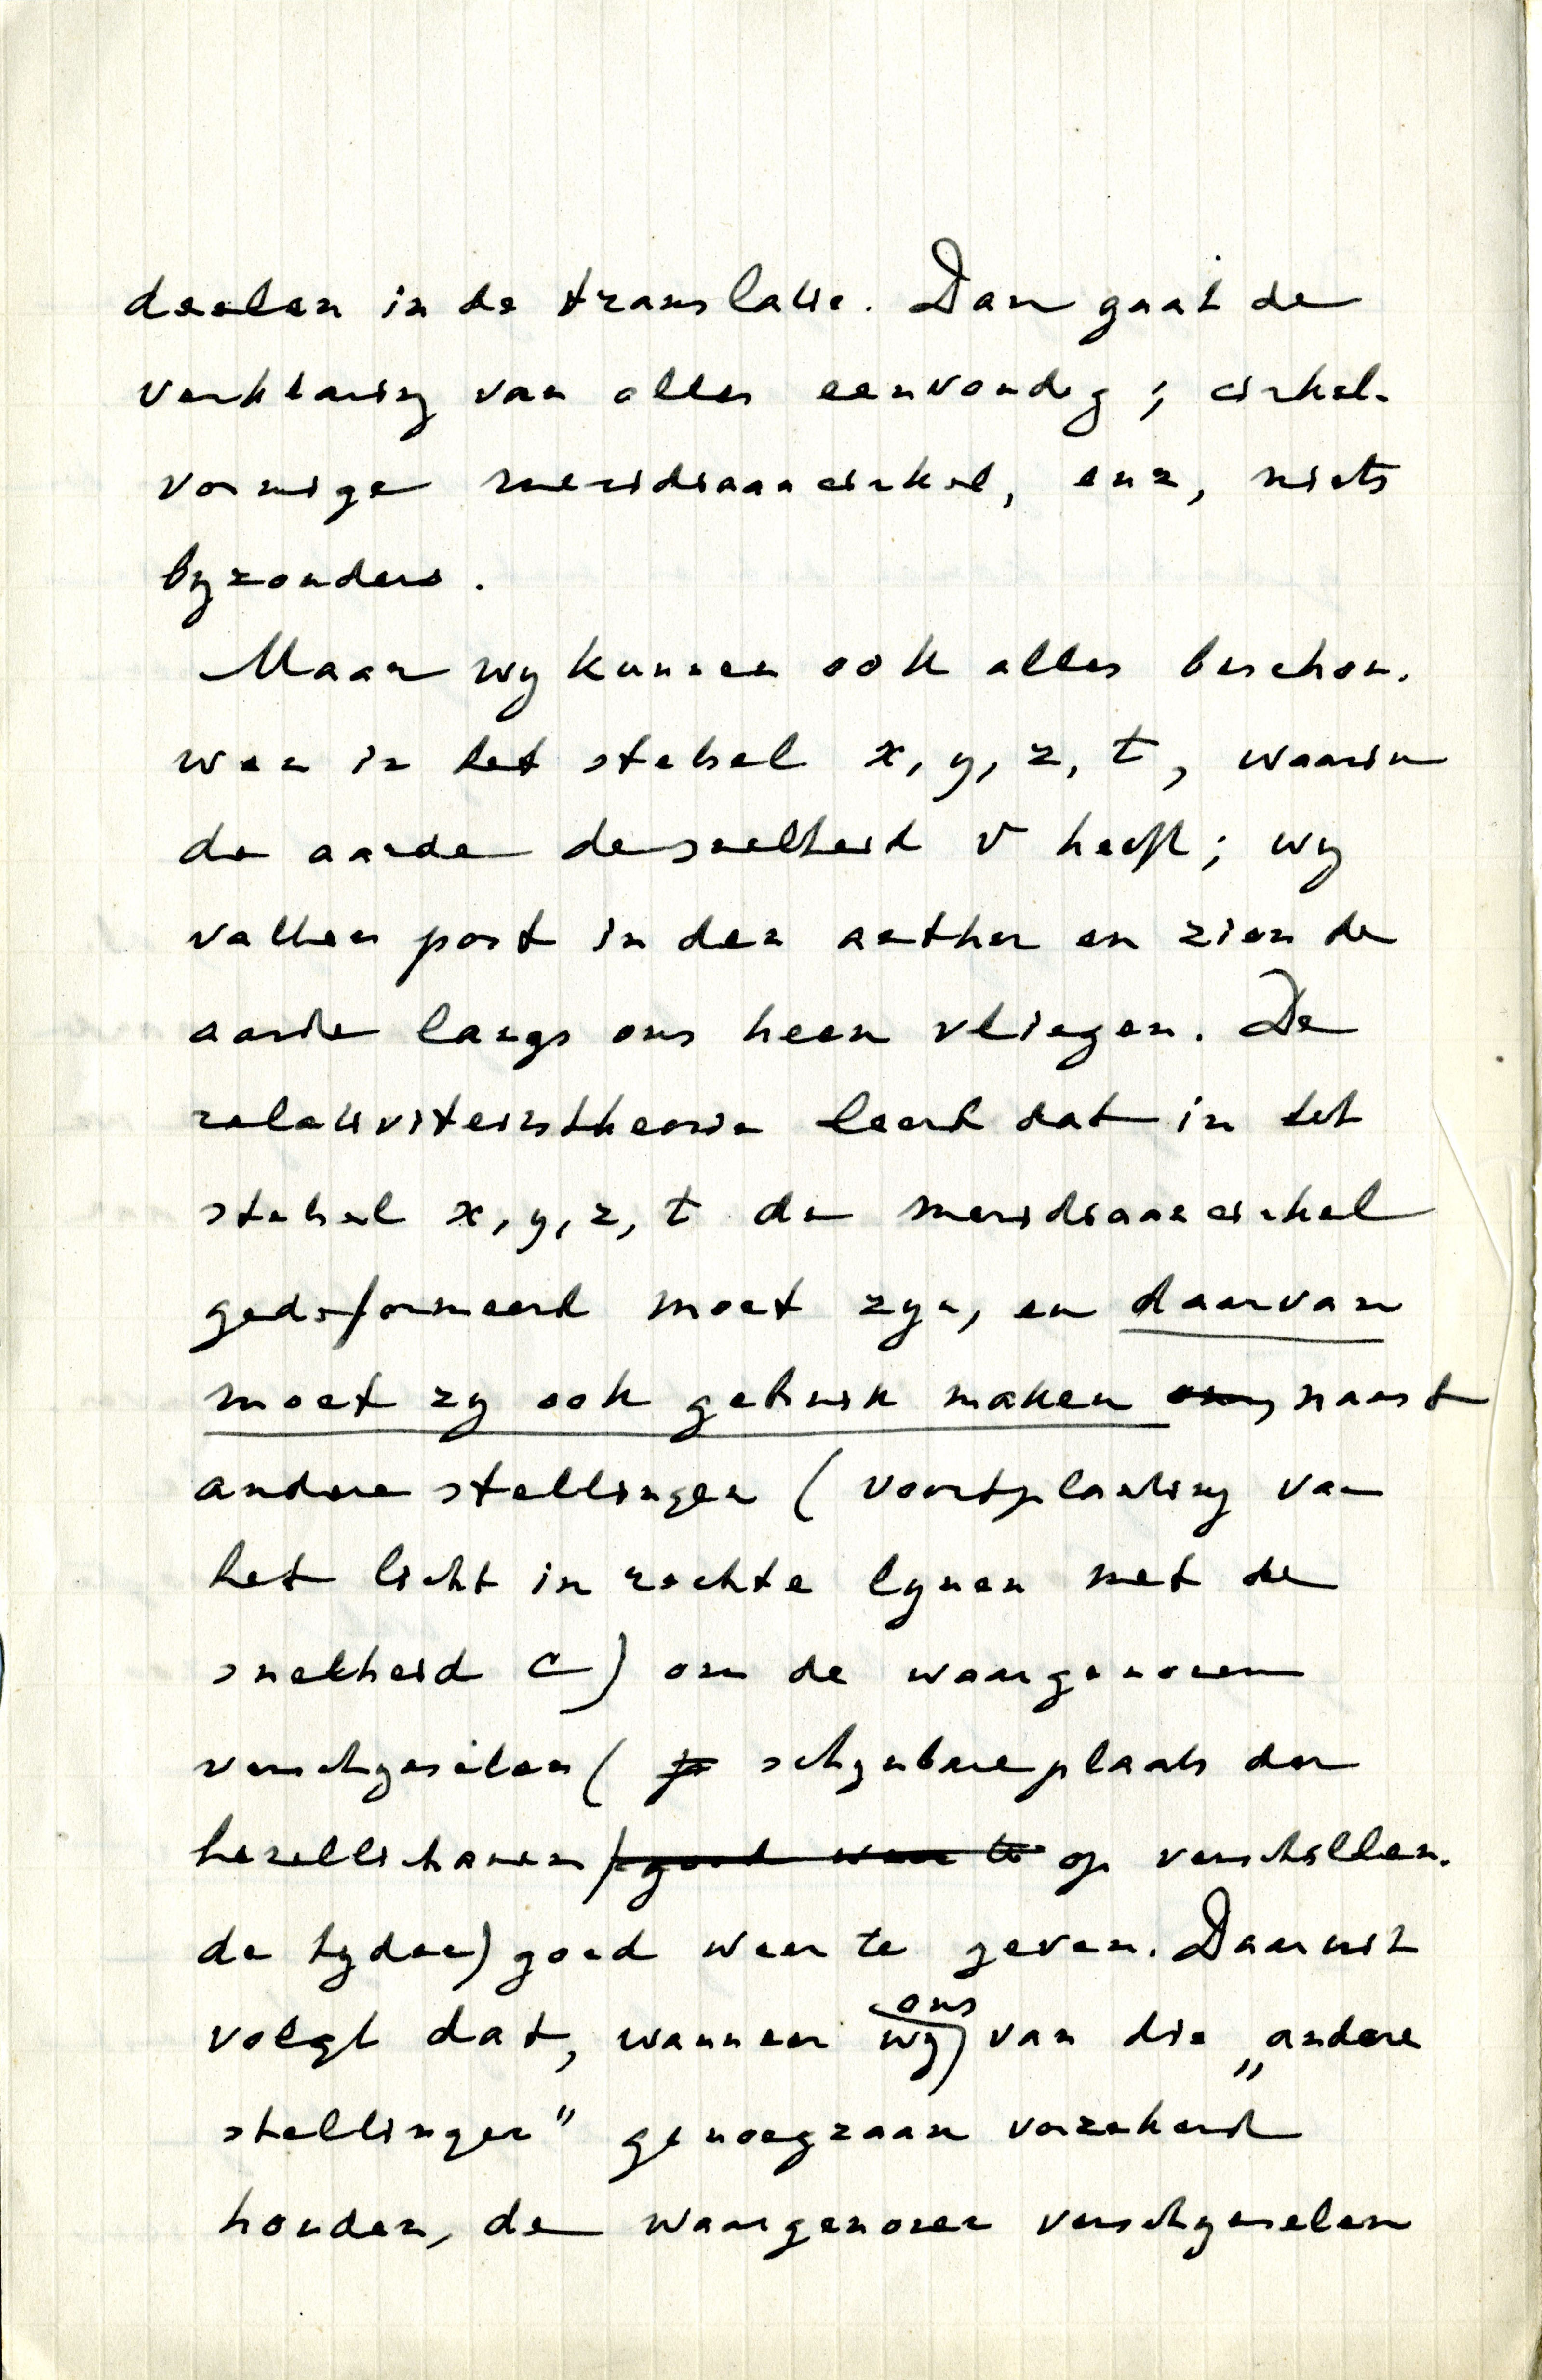 deelen in de translatie. Dan gaat de
verklaring van alles eenvoudig; cirkel-
vormige meridiaancirkel, enz, niets
byzonders.
Maar wy kunnen ook alles beschou-
wen in het stelsel x, y, z, t, waarin
de aarde de snelheid v heeft; wy
vatten post in den aether en zien de
aarde langs ons heen vliegen. De
relativiteitstheorie leert dat in het
stelsel x, y, z, t de meridiaancirkel
gedeformeerd moet zyn, en daarvan
moet zy ook gebruik maken om, naast
andere stellingen (voortplanting van
het licht in rechte lynen met de
snelheid c) om de waargenomen
verschynselen ( schynbare plaats der
hemellichamen goed weer te op verschillen-
de tyden) goed weer te geven. Daaruit
volgt dat, wanneer wy ons van die „andere
stellingen" genoegzaam verzekerd
houden, de waargenomen verschynselen